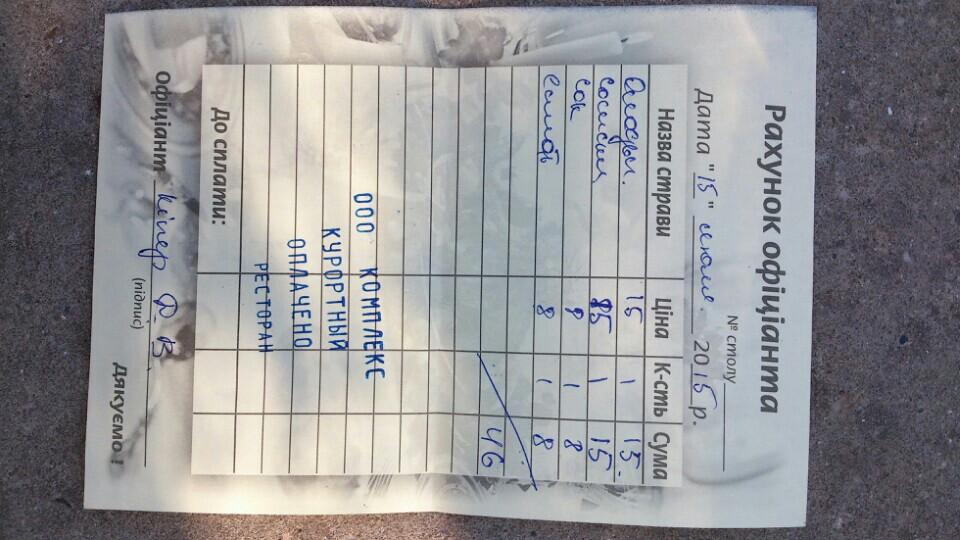 Рахунок офіціанта
№ столу
Дата "15" июня 2015 р.
Назва страви Ціна К-сть Сума
Оладьи. 15 1 15-
сосиски 1 15-
сок 8 1 8
8 1 8
46
ООО КОМПЛЕКС
КУРОРТНЫЙ
ОПЛАЧЕНО
РЕСТОРАН
До сплати:
Офіціант Кіпер В.
(підпис)
Дякуємо !